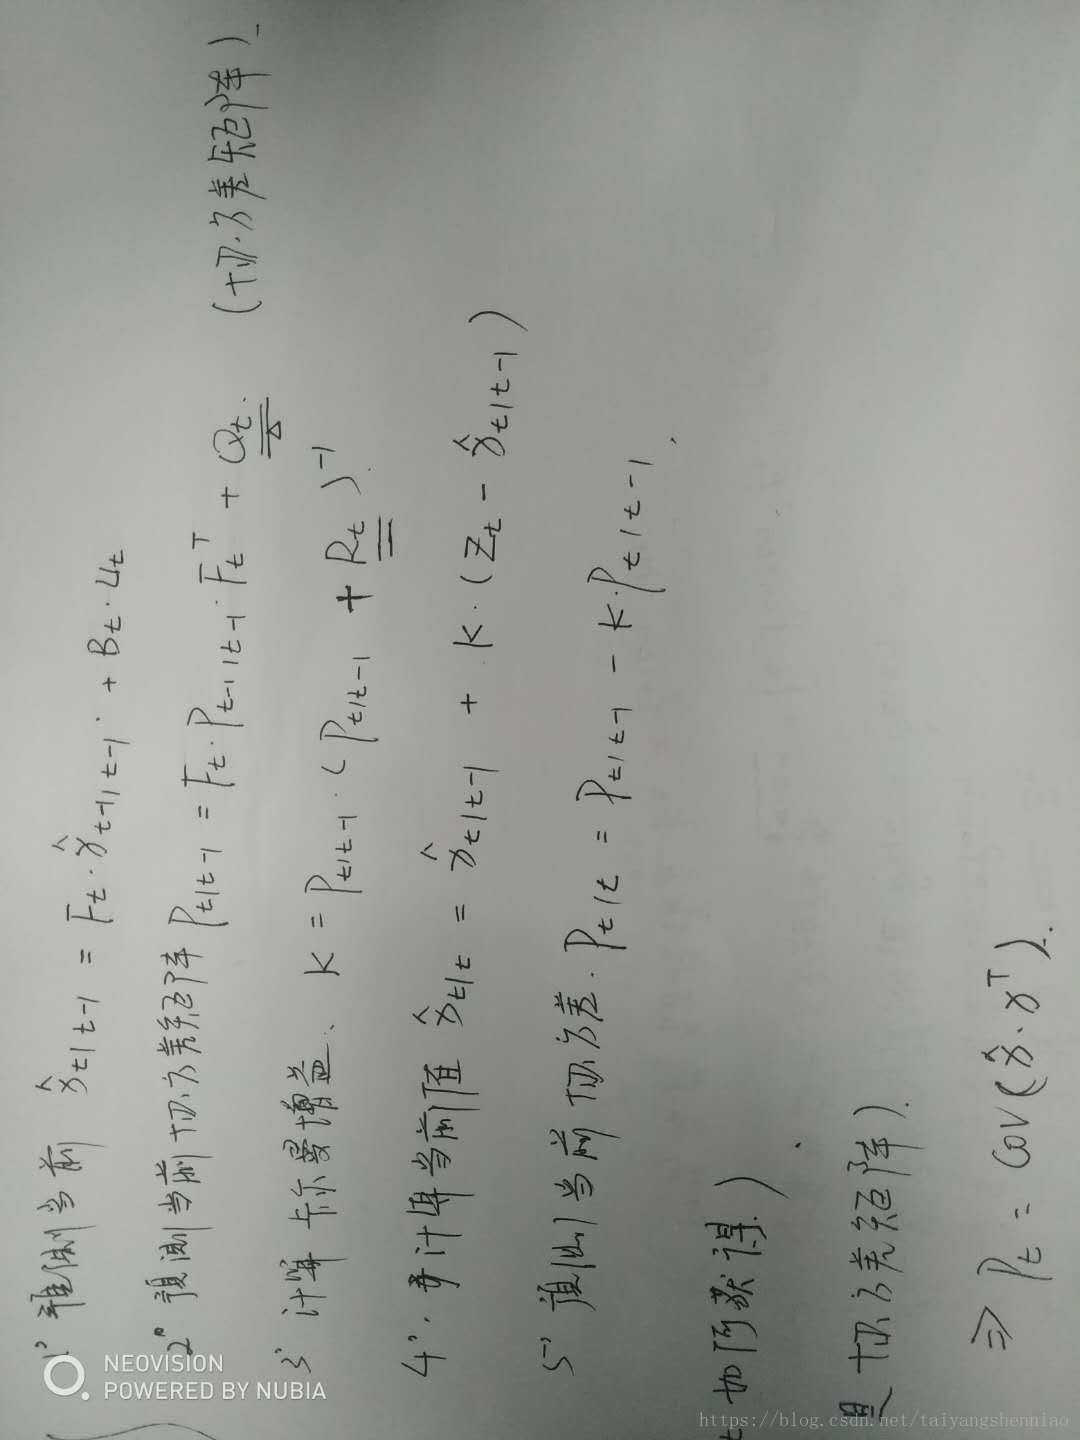 1° 推测当前 x̂t|t-1 = Ft·x̂t-1|t-1· + Bt·ut
2° 预测当前协方差矩阵 Pt|t-1 = Ft·Pt-1|t-1·Ft^T + Qt. (协方差矩阵).
3° 计算 卡尔曼增益、 K = Pt|t-1·(Pt|t-1 + Rt)^-1.
4°. 计算当前值 x̂t|t = x̂t|t-1 + K·(Zt - x̂t|t-1)
5° 预测当前协方差. Pt|t = Pt|t-1 - K·Pt|t-1.
如何获得.)
协方差矩阵).
⇒ Pt = cov(x̂·x^T).
NEOVISION
POWERED BY NUBIA
https://blog.csdn.net/taiyangshenniao